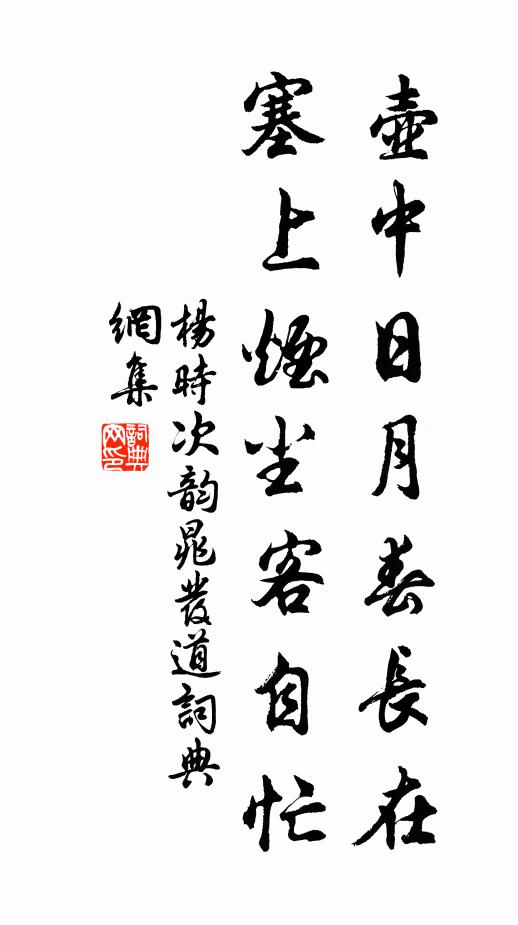 壺中日月春長在
塞上煙尘客自忙
楊時次韵晁發道詞典
網集
詞典
网印